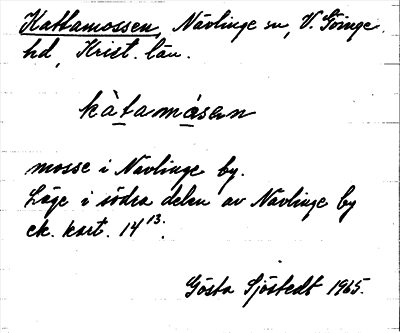 Kattamossen, Nävlinge sn, V. Göinge
hd, Krist. län.
kàtamåsen
mosse i Nävlinge by.
Läge i södra delen av Nävlinge by
ek. kart. 14¹³.
Gösta Sjöstedt 1965.